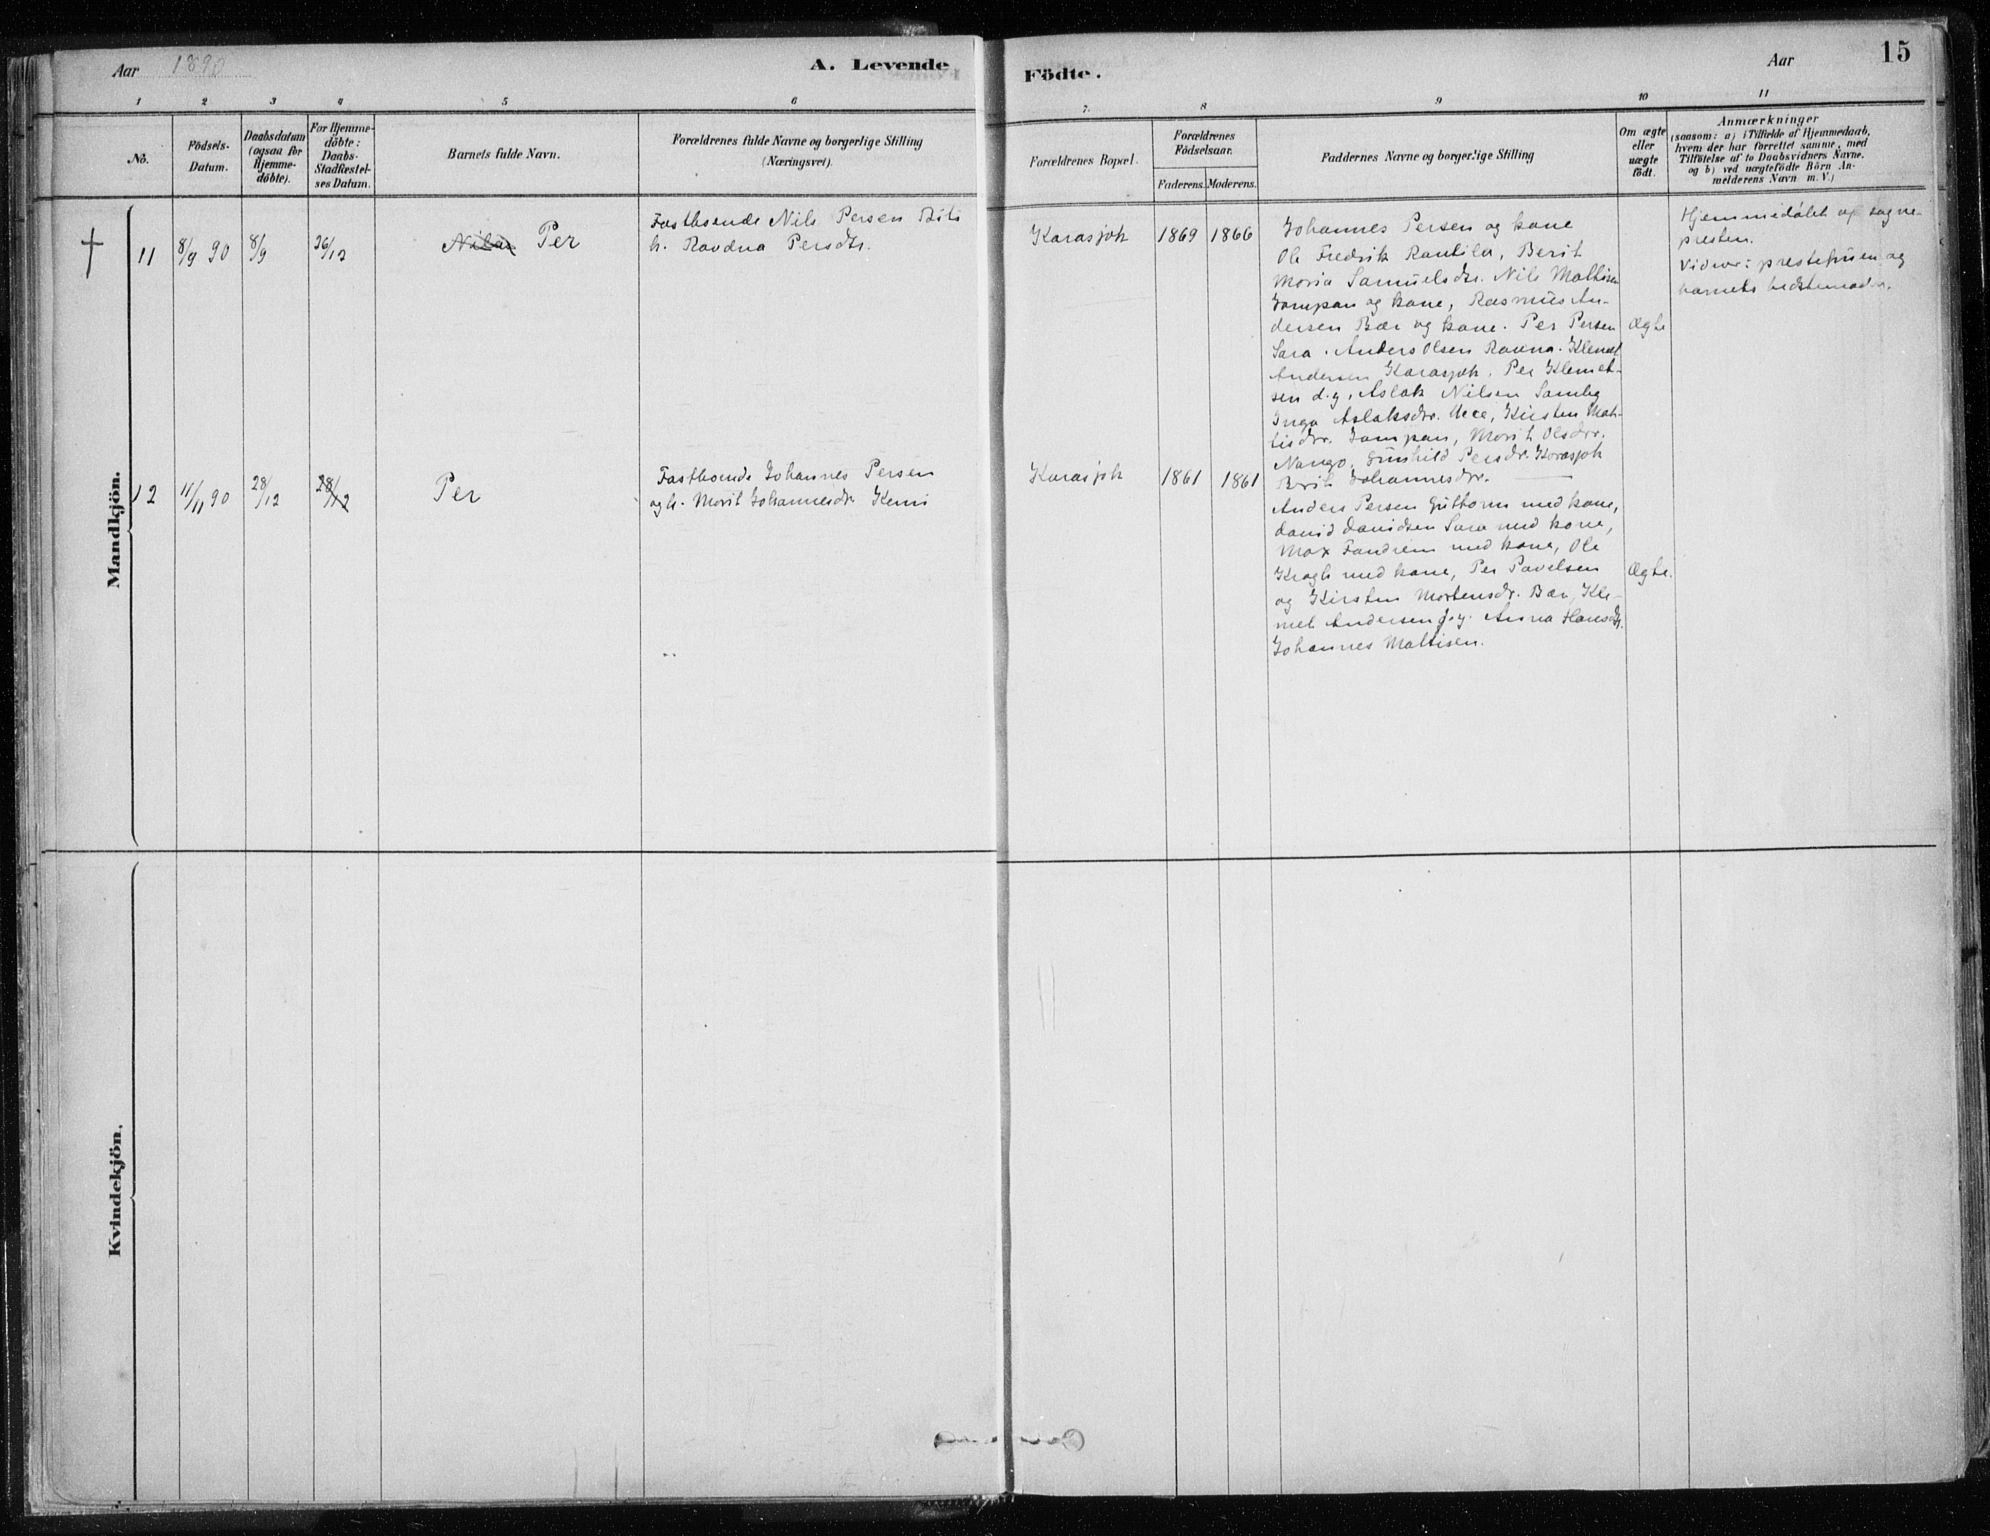 Aar 1890
A. Levende
Födte.
Aar
15
1 2 3 4 5 6 7. 8 9 10 11
No.
Födsels-
Datum.
Daabsdatum
(ogsaa for
Hjemme-
döbte).
For Hjemme-
döbte:
Daabs-
Stadfæstel-
ses Datum.
Barnets fulde Navn.
Forældrenes fulde Navne og borgerlige Stilling
(Næringsvei).
Forældrenes Bopæl.
Forældrenes
Födselsaar.
Faderens.
Moderens.
Faddernes Navne og borgerlige Stilling
Om ægte
eller
uægte
födt.
Anmærkninger
(saasom: a) i Tilfælde af Hjemmedaab,
hvem der har forrettet samme, med
Tilföielse af to Daabsvidners Navne,
og b) ved uægtefödte Börn An-
melderens Navn m. V.)
Mandkjön.
11
8/9 90
8/9
26/12
Nilas Per
Fastboende Nils Persen
h. Ravdna Persdtr.
Karasjok
1869
1866
Johannes Persen og kone
Ole Fredrik Rautila, Berit
Maria Samuelsdtr. Nils Mattisen
Jompan og kone, Rasmus An-
dersen Bær og kone. Per Persen
Sara. Anders Olsen Rauna. Klemet
Andersen Karasjok. Per Klemet-
sen d.y. Aslak Nilsen Somby
Inga Aslaksdtr. Ucce, Kirsten Mat-
tisdtr. Jompan, Marit Olsdtr.
Nango, Gunhild Persdr. Karasjok
Berit Johannesdtr.
Ægte
Hjemmedøbt af sogne-
presten.
Vidner: prestefruen og
barnets bedstemoder.
12
11/11 90
28/12
28/12
Per
Fastboende Johannes Persen
og h. Marit Johannesdr. Kemi
Karasjok
1861
1861
Anders Persen Guttorm med kone,
David Davidsen Sara med kone,
Max Fandrem med kone, Ole
Kragh med kone, Per Pavelsen
og Kirsten Mortensdr. Bær, Kle-
met Andersen d.y. Anna Hansdtr.
Johannes Mattisen.
Ægte.
Kvindekjön.